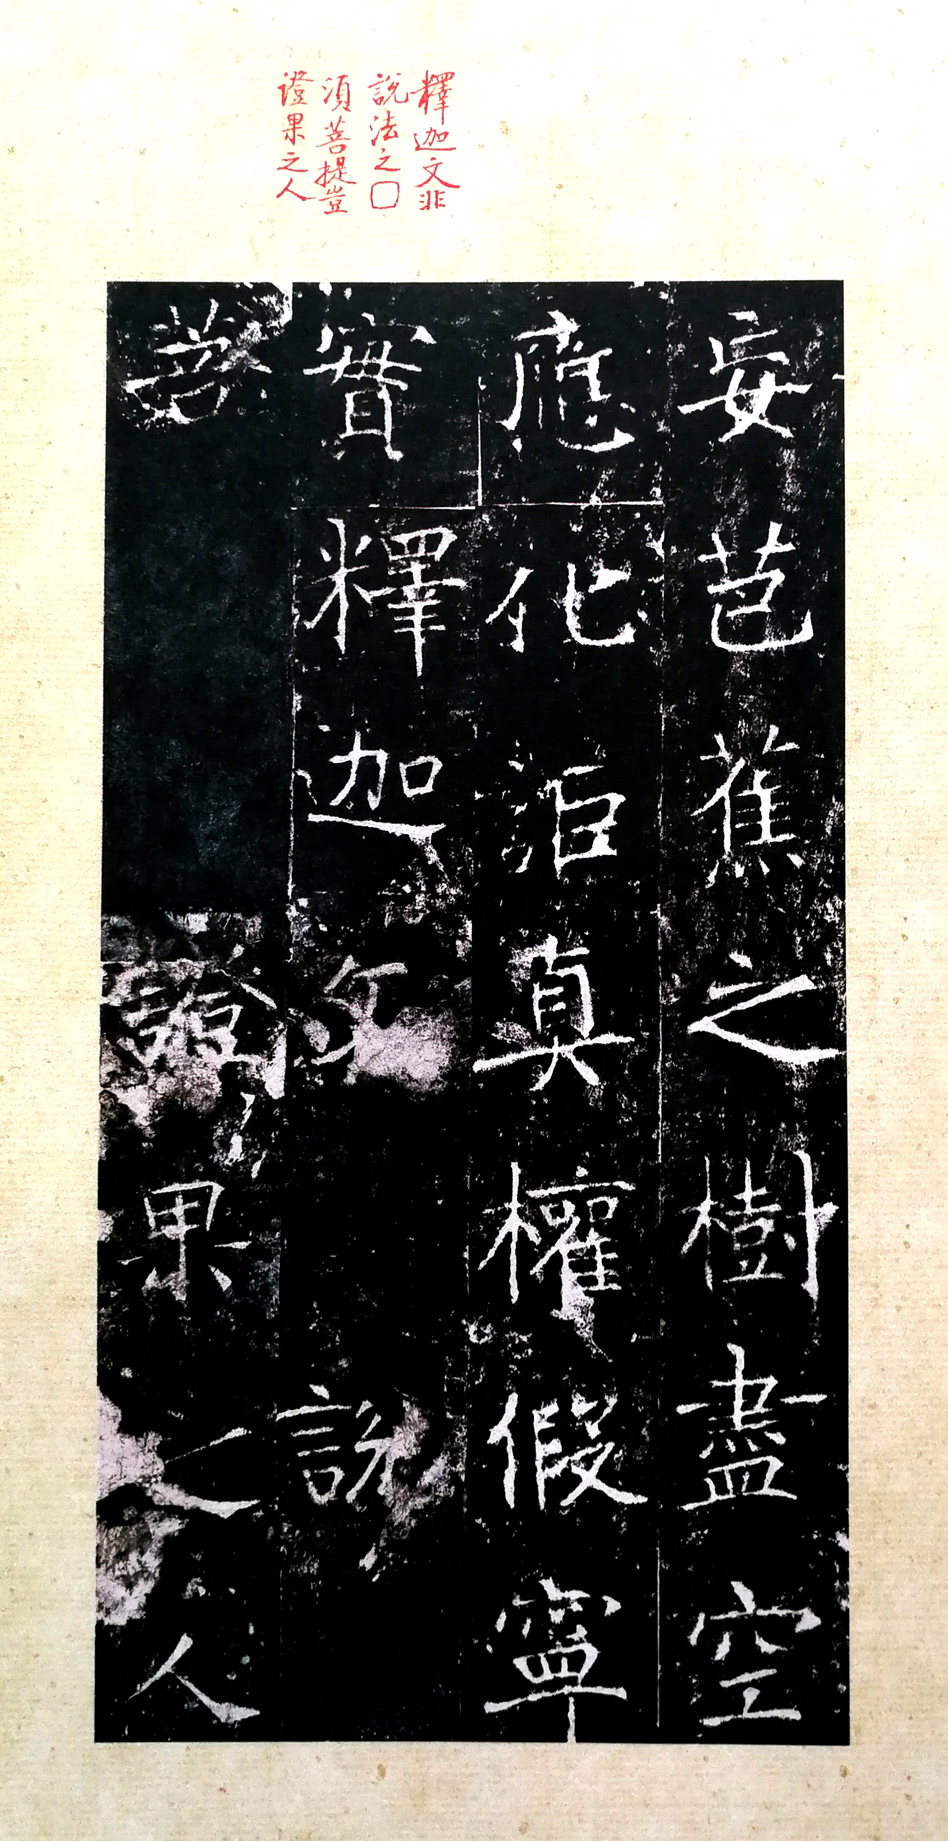 釋迦文非
說法之□
須菩提豈
證果之人
妄芭蕉之樹盡空
應化詎真權假寧
實釋迦文說
菩證果之人